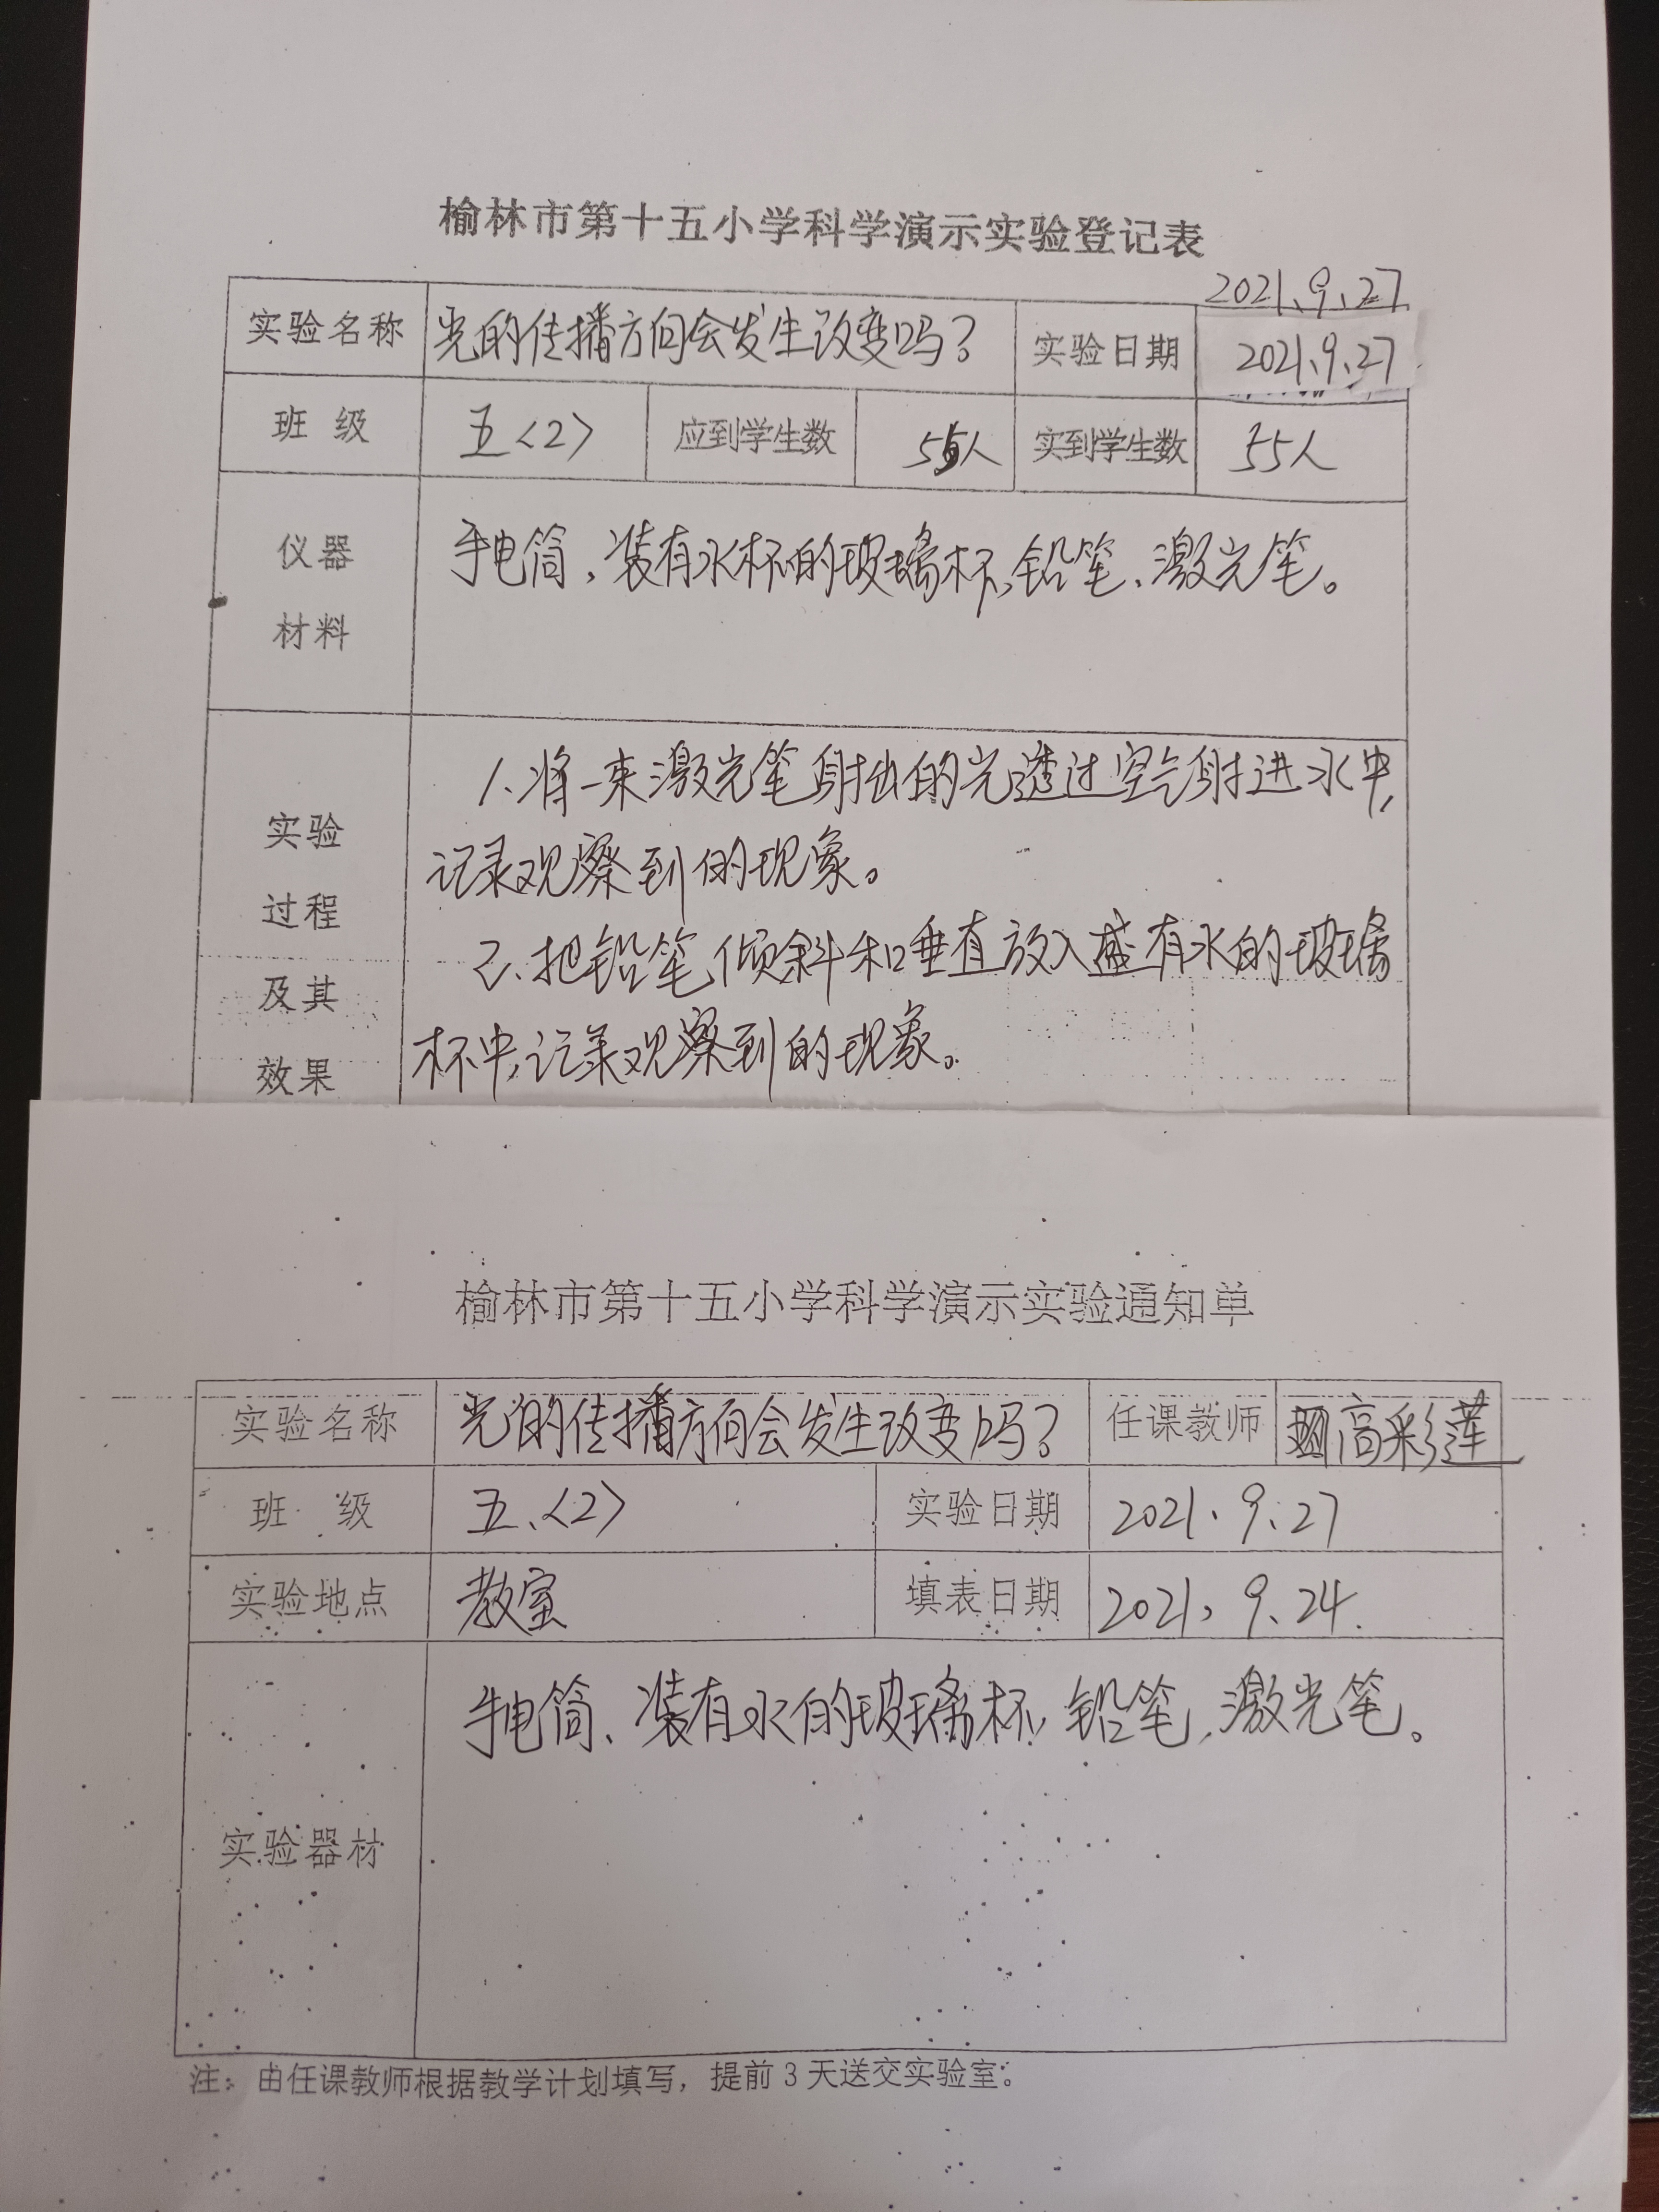 榆林市第十五小学科学演示实验登记表
2021.9.27
实验名称 光的传播方向会发生改变吗? 实验日期 2021.9.27
班 级 五<2> 应到学生数 55人 实到学生数 55人
仪器 手电筒、装有水杯的玻璃杯、铅笔、激光笔。
材料
1.将一束激光笔射出的光透过空气射进水中,
实验 记录观察到的现象。
过程 2、把铅笔倾斜和垂直放入盛有水的玻璃
及其 杯中,记录观察到的现象。
效果
榆林市第十五小学科学演示实验通知单
实验名称 光的传播方向会发生改变吗? 任课教师 高彩莲
班 级 五、<2> 实验日期 2021.9.27
实验地点 教室 填表日期 2021.9.24.
手电筒、装有水的玻璃杯、铅笔、激光笔。
实验器材
注:由任课教师根据教学计划填写,提前3天送交实验室。